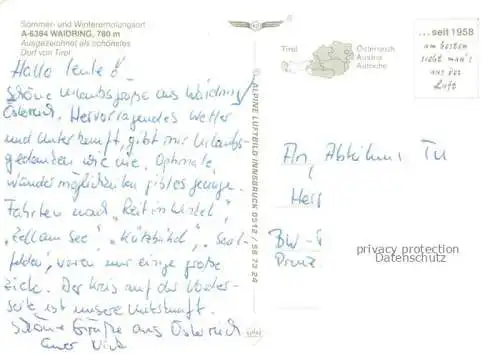 Sommer- und Wintererholungsort
A-6384 WAIDRING, 780 m
Ausgezeichnet als schönstes
Dorf von Tirol
Hallo Leute!
Schöne Urlaubsgrüße aus Waidring/
Österreich. Hervorragendes Wetter
und Unterkunft, gibt mir Urlaubs-
gedanken wie nie. Optimale
Wandermöglichkeiten gibt es genüge.
Fahrten nach „Reit im Winkel",
„Zell am See", „Kitzbühel", „Saal-
felden", waren nur einige große
Ziele. Der Kreis auf der Vorder-
seite ist unsere Unterkunft.
Schöne Grüße aus Österreich
Euer
ALPINE LUFTBILD INNSBRUCK 0512 / 58 73 24
Tirol
Österreich
Austria
Autriche
...seit 1958
am besten
sieht man's
aus der
Luft
An, Abteilung
Herr
BW-
privacy protection
Datenschutz